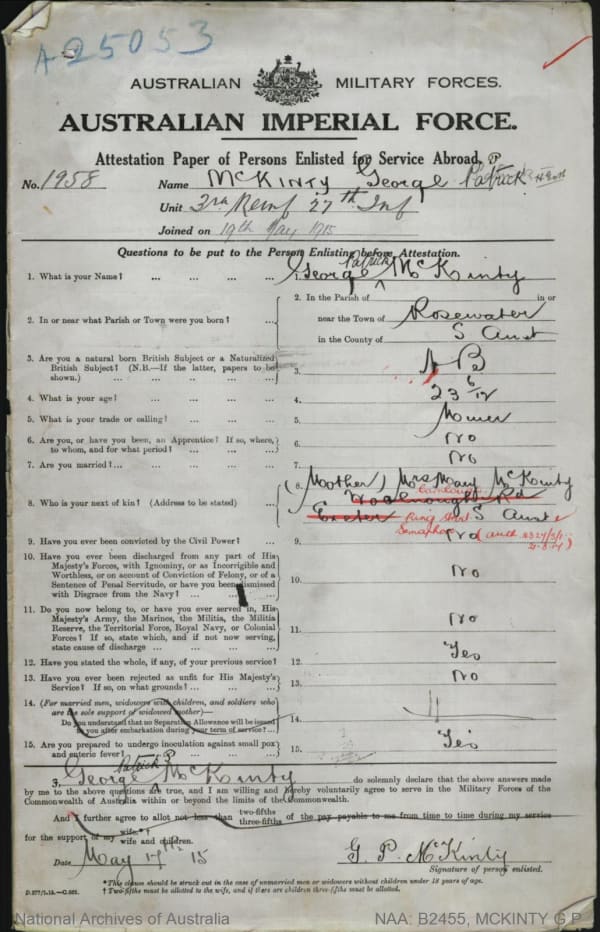 A25053
AUSTRALIAN MILITARY FORCES.
AUSTRALIAN IMPERIAL FORCE.
Attestation Paper of Persons Enlisted for Service Abroad.
No. 1958 Name McKINTY George Patrick
Unit 3rd Reinf 27th Inf
Joined on 19th May 1915
Questions to be put to the Person Enlisting before Attestation.
1. What is your Name? ... ... ... ... 1. George Patrick McKinty
2. In or near what Parish or Town were you born? ... 2. In the Parish of in or
near the Town of Rosewater
in the County of S Aust
3. Are you a natural born British Subject or a Naturalized
British Subject? (N.B.—If the latter, papers to be
shown.) ... ... ... ... 3. N B
4. What is your age? ... ... ... ... 4. 23 6/12
5. What is your trade or calling? ... ... ... 5.
6. Are you, or have you been, an Apprentice? If so, where,
to whom, and for what period? ... ... ... 6. No
7. Are you married? ... ... ... ... 7. No
8. Who is your next of kin? (Address to be stated) ... 8. (Mother) Mrs Mary McKinty
Rd
Exeter S Aust
King Street
Semaphore
9. Have you ever been convicted by the Civil Power? ... 9. No
10. Have you ever been discharged from any part of His
Majesty's Forces, with Ignominy, or as Incorrigible and
Worthless, or on account of Conviction of Felony, or of a
Sentence of Penal Servitude, or have you been dismissed
with Disgrace from the Navy? ... ... ... 10. No
11. Do you now belong to, or have you ever served in, His
Majesty's Army, the Marines, the Militia, the Militia
Reserve, the Territorial Force, Royal Navy, or Colonial
Forces? If so, state which, and if not now serving,
state cause of discharge ... ... ... ... 11. No
12. Have you stated the whole, if any, of your previous service? 12. Yes
13. Have you ever been rejected as unfit for His Majesty's
Service? If so, on what grounds? ... ... ... 13. No
14. (For married men, widowers with children, and soldiers who
are the sole support of widowed mother)—
Do you understand that no Separation Allowance will be issued
to you after embarkation during your term of service? ... 14.
15. Are you prepared to undergo inoculation against small pox
and enteric fever? ... ... ... ... 15. Yes
3, George Patrick McKinty do solemnly declare that the above answers made
by me to the above questions are true, and I am willing and hereby voluntarily agree to serve in the Military Forces of the
Commonwealth of Australia within or beyond the limits of the Commonwealth.
And I further agree to allot not less than two-fifths three-fifths of the pay payable to me from time to time during my service
for the support of my wife.*† wife and children.
Date May 17th 15 G. P. McKinty
Signature of person enlisted.
*This clause should be struck out in the case of unmarried men or widowers without children under 18 years of age.
†Two-fifths must be allotted to the wife, and if there are children three-fifths must be allotted.
National Archives of Australia NAA: B2455, MCKINTY G P